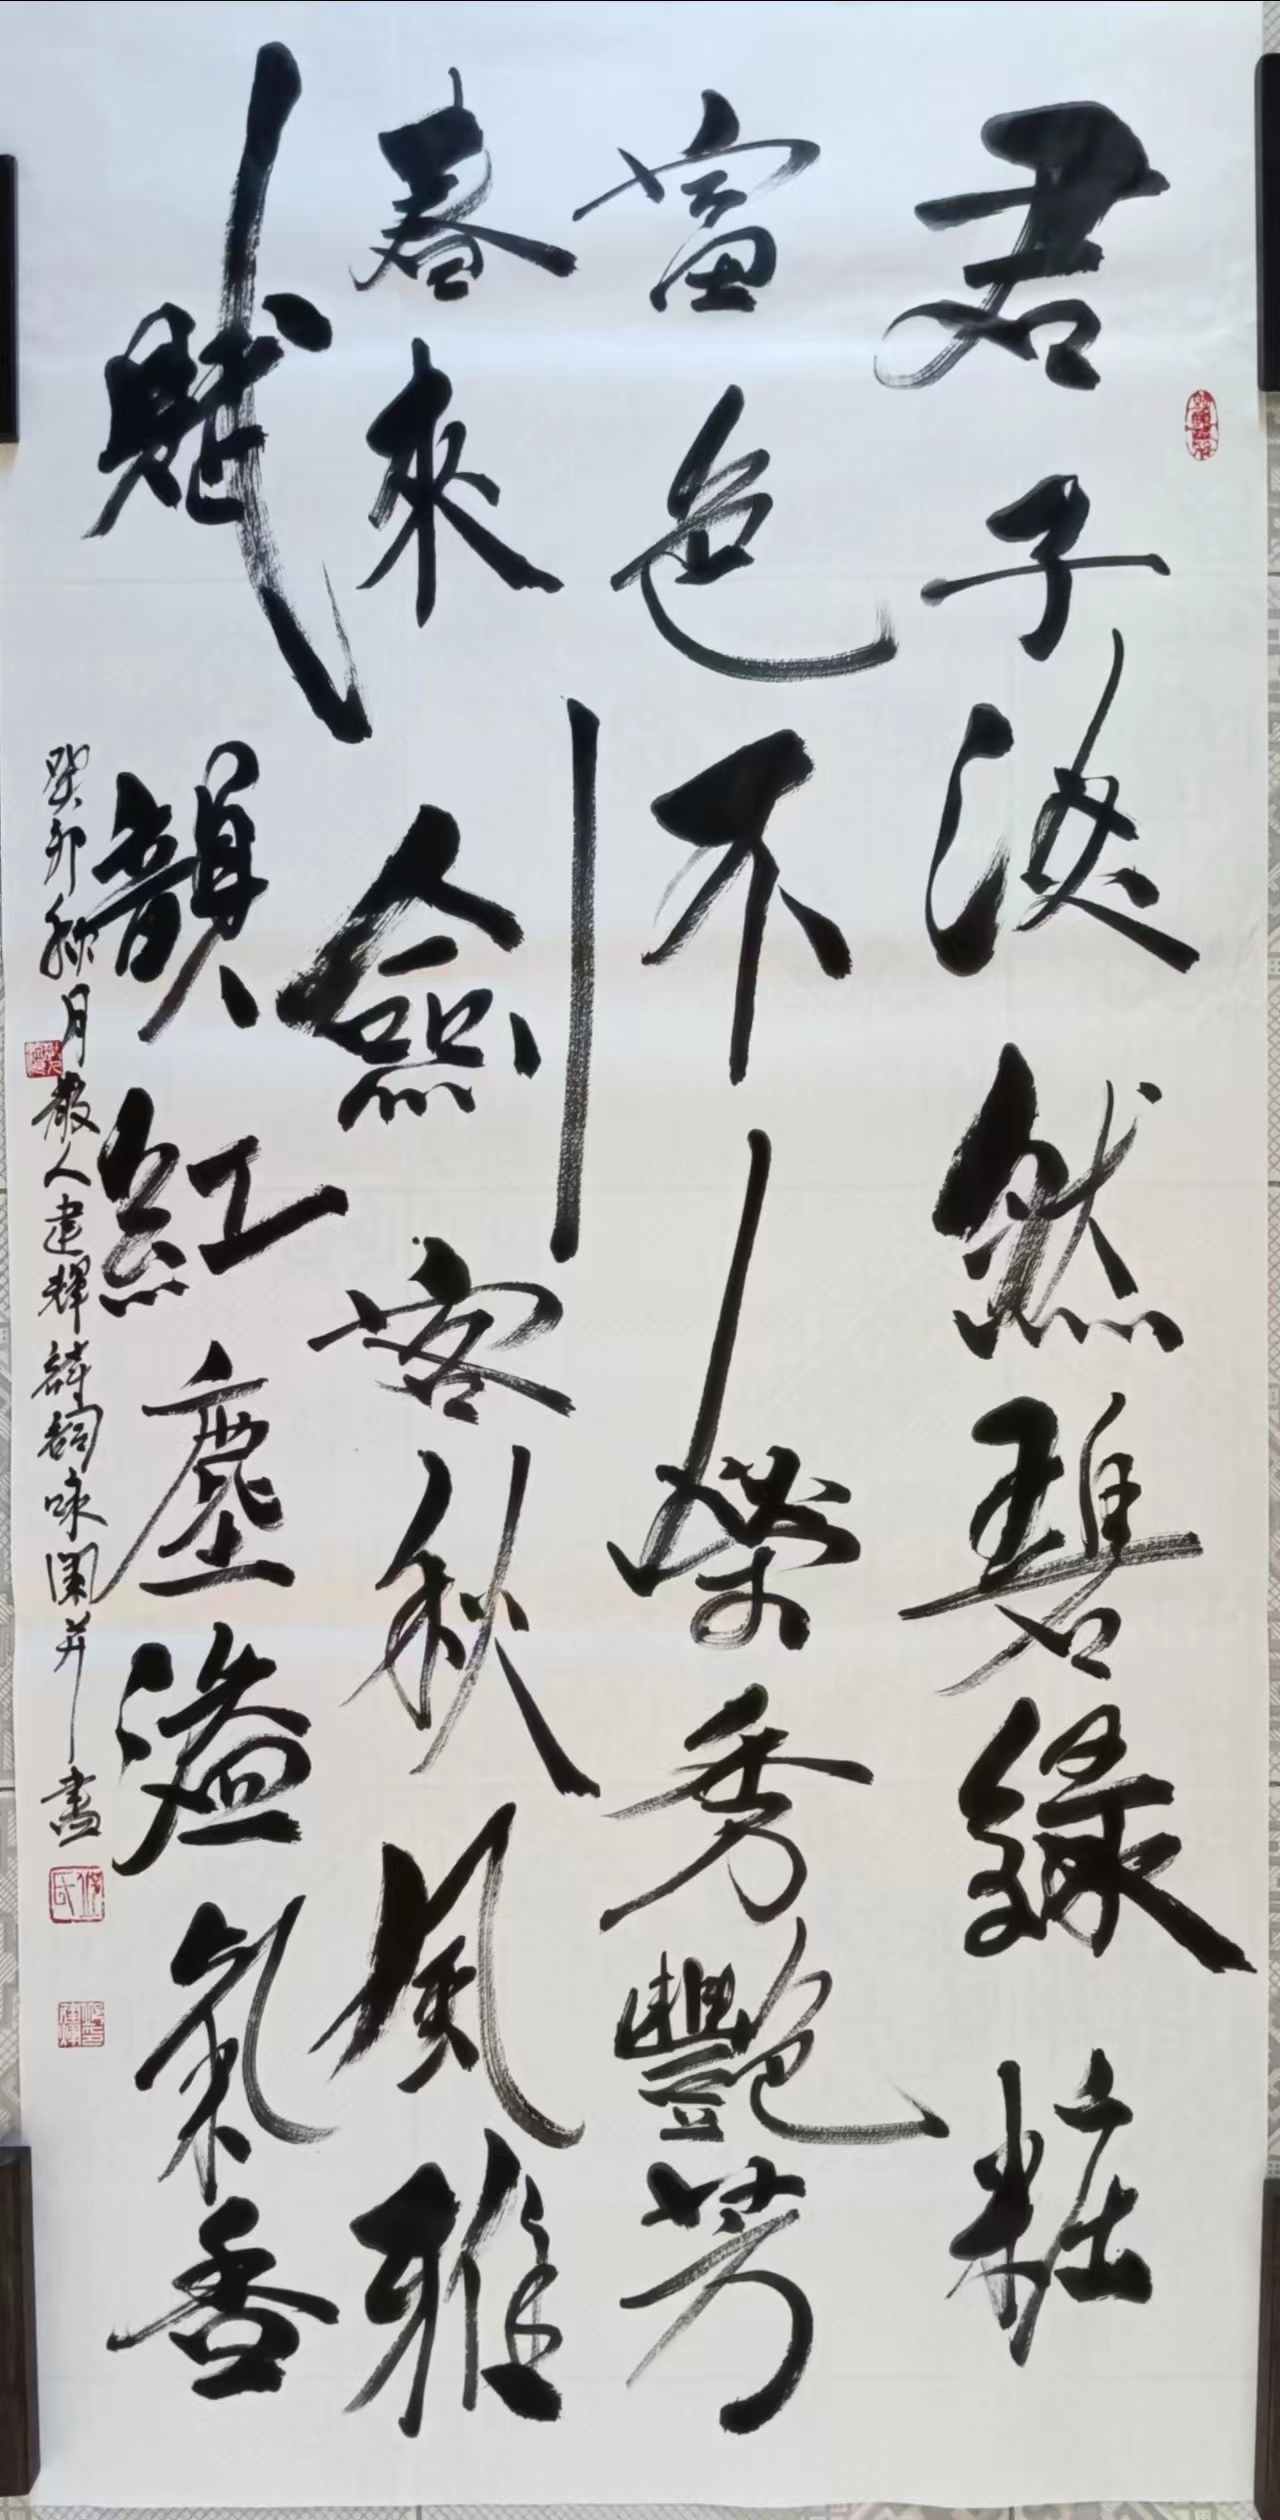 君子淡然碧綠粧
富色不榮秀艷芳
春來劍客秋風雅
賦韻紅塵溢氣香
癸卯秋月散人建輝詩詞咏蘭并書